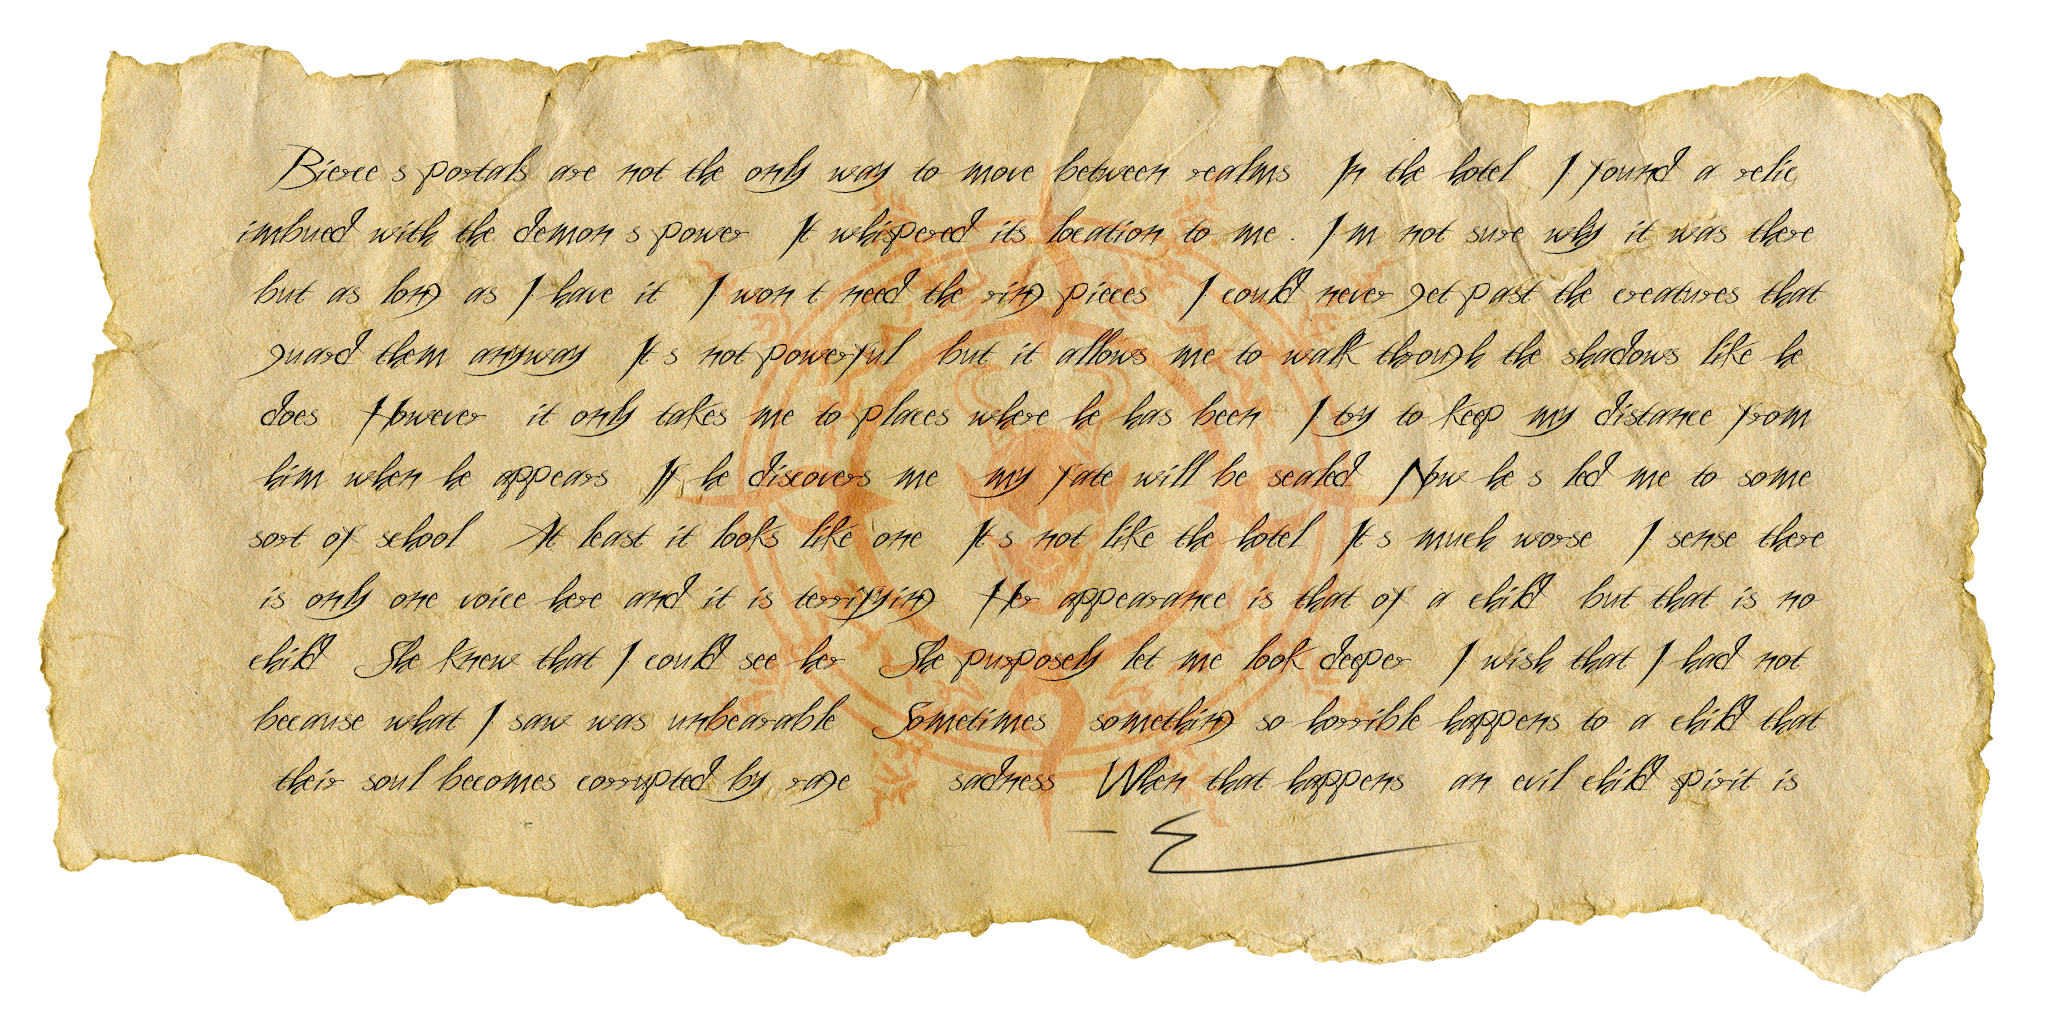 Bierce s portals are not the only way to move between realms In the hotel I found a relic
imbued with the demon s power It whispered its location to me. I m not sure why it was there
but as long as I have it I won t need the ring pieces I could never get past the creatures that
guard them anyway It s not powerful but it allows me to walk through the shadows like he
does However it only takes me to places where he has been I try to keep my distance from
him when he appears If he discovers me my fate will be sealed Now he s led me to some
sort of school At least it looks like one It s not like the hotel It s much worse I sense there
is only one voice here and it is terrifying Her appearance is that of a child but that is no
child She knew that I could see her She purposely let me look deeper I wish that I had not
because what I saw was unbearable Sometimes something so horrible happens to a child that
their soul becomes corrupted by rage sadness When that happens an evil child spirit is
- E